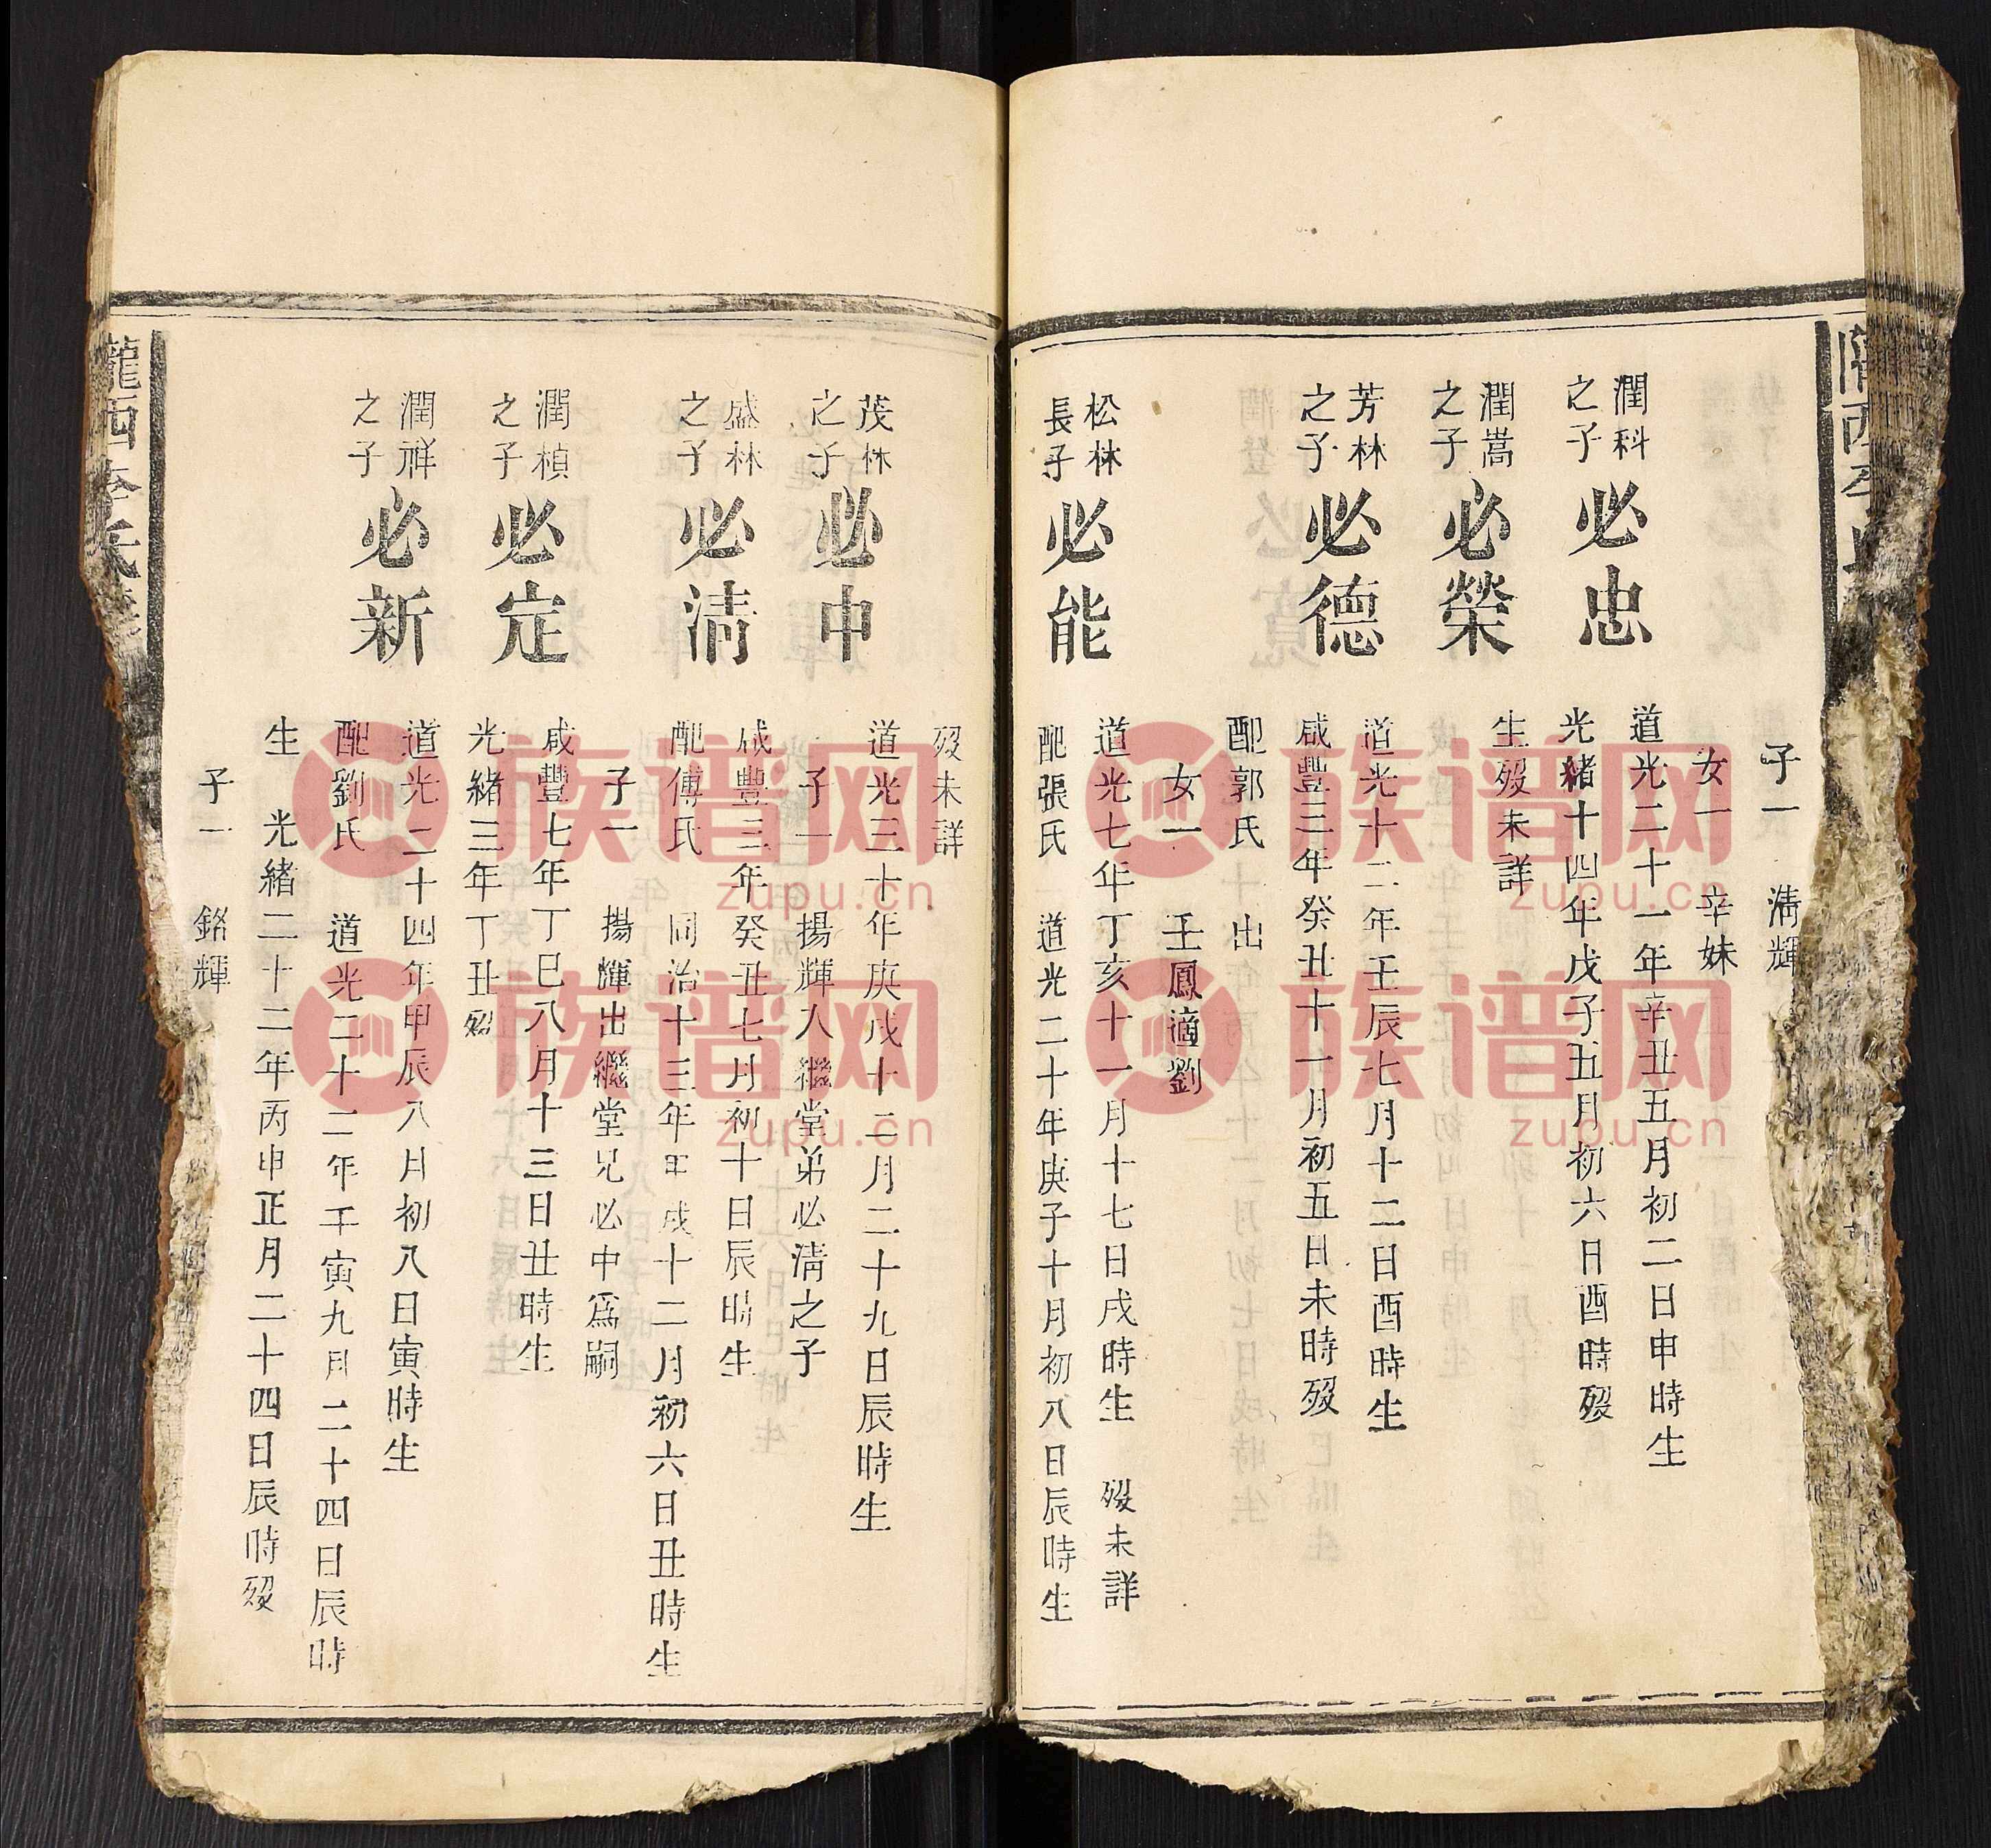 隴西李氏
子一　清輝
女一　辛妹
潤科之子　必忠
道光二十一年辛丑五月初二日申時生
光緒十四年戊子五月初六日酉時歿
潤嵩之子　必榮
生歿未詳
芳林之子　必德
道光十二年壬辰七月十二日酉時生
咸豐三年癸丑十一月初五日未時歿
配郭氏　出
女一　壬鳳適劉
松林長子　必能
道光七年丁亥十一月十七日戌時生　歿未詳
配張氏　道光二十年庚子十月初八日辰時生
歿未詳
茂林之子　必中
道光三十年庚戌十二月二十九日辰時生
子一　揚輝入繼堂弟必清之子
盛林之子　必清
咸豐三年癸丑七月初十日辰時生
配傅氏　同治十三年甲戌十二月初六日丑時生
子一　揚輝出繼堂兄必中爲嗣
潤楨之子　必定
咸豐七年丁巳八月十三日丑時生
光緒三年丁丑歿
潤祥之子　必新
道光二十四年甲辰八月初八日寅時生
配劉氏　道光二十二年壬寅九月二十四日辰時
生　光緒二十二年丙申正月二十四日辰時歿
子一　銘輝
隴西李氏
族谱网
zupu.cn
族谱网
zupu.cn
族谱网
zupu.cn
族谱网
zupu.cn